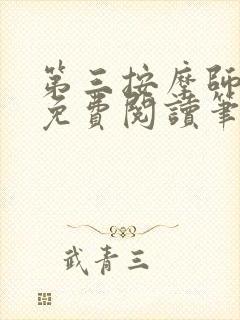 第三按摩師
免費閱讀筆
武青三